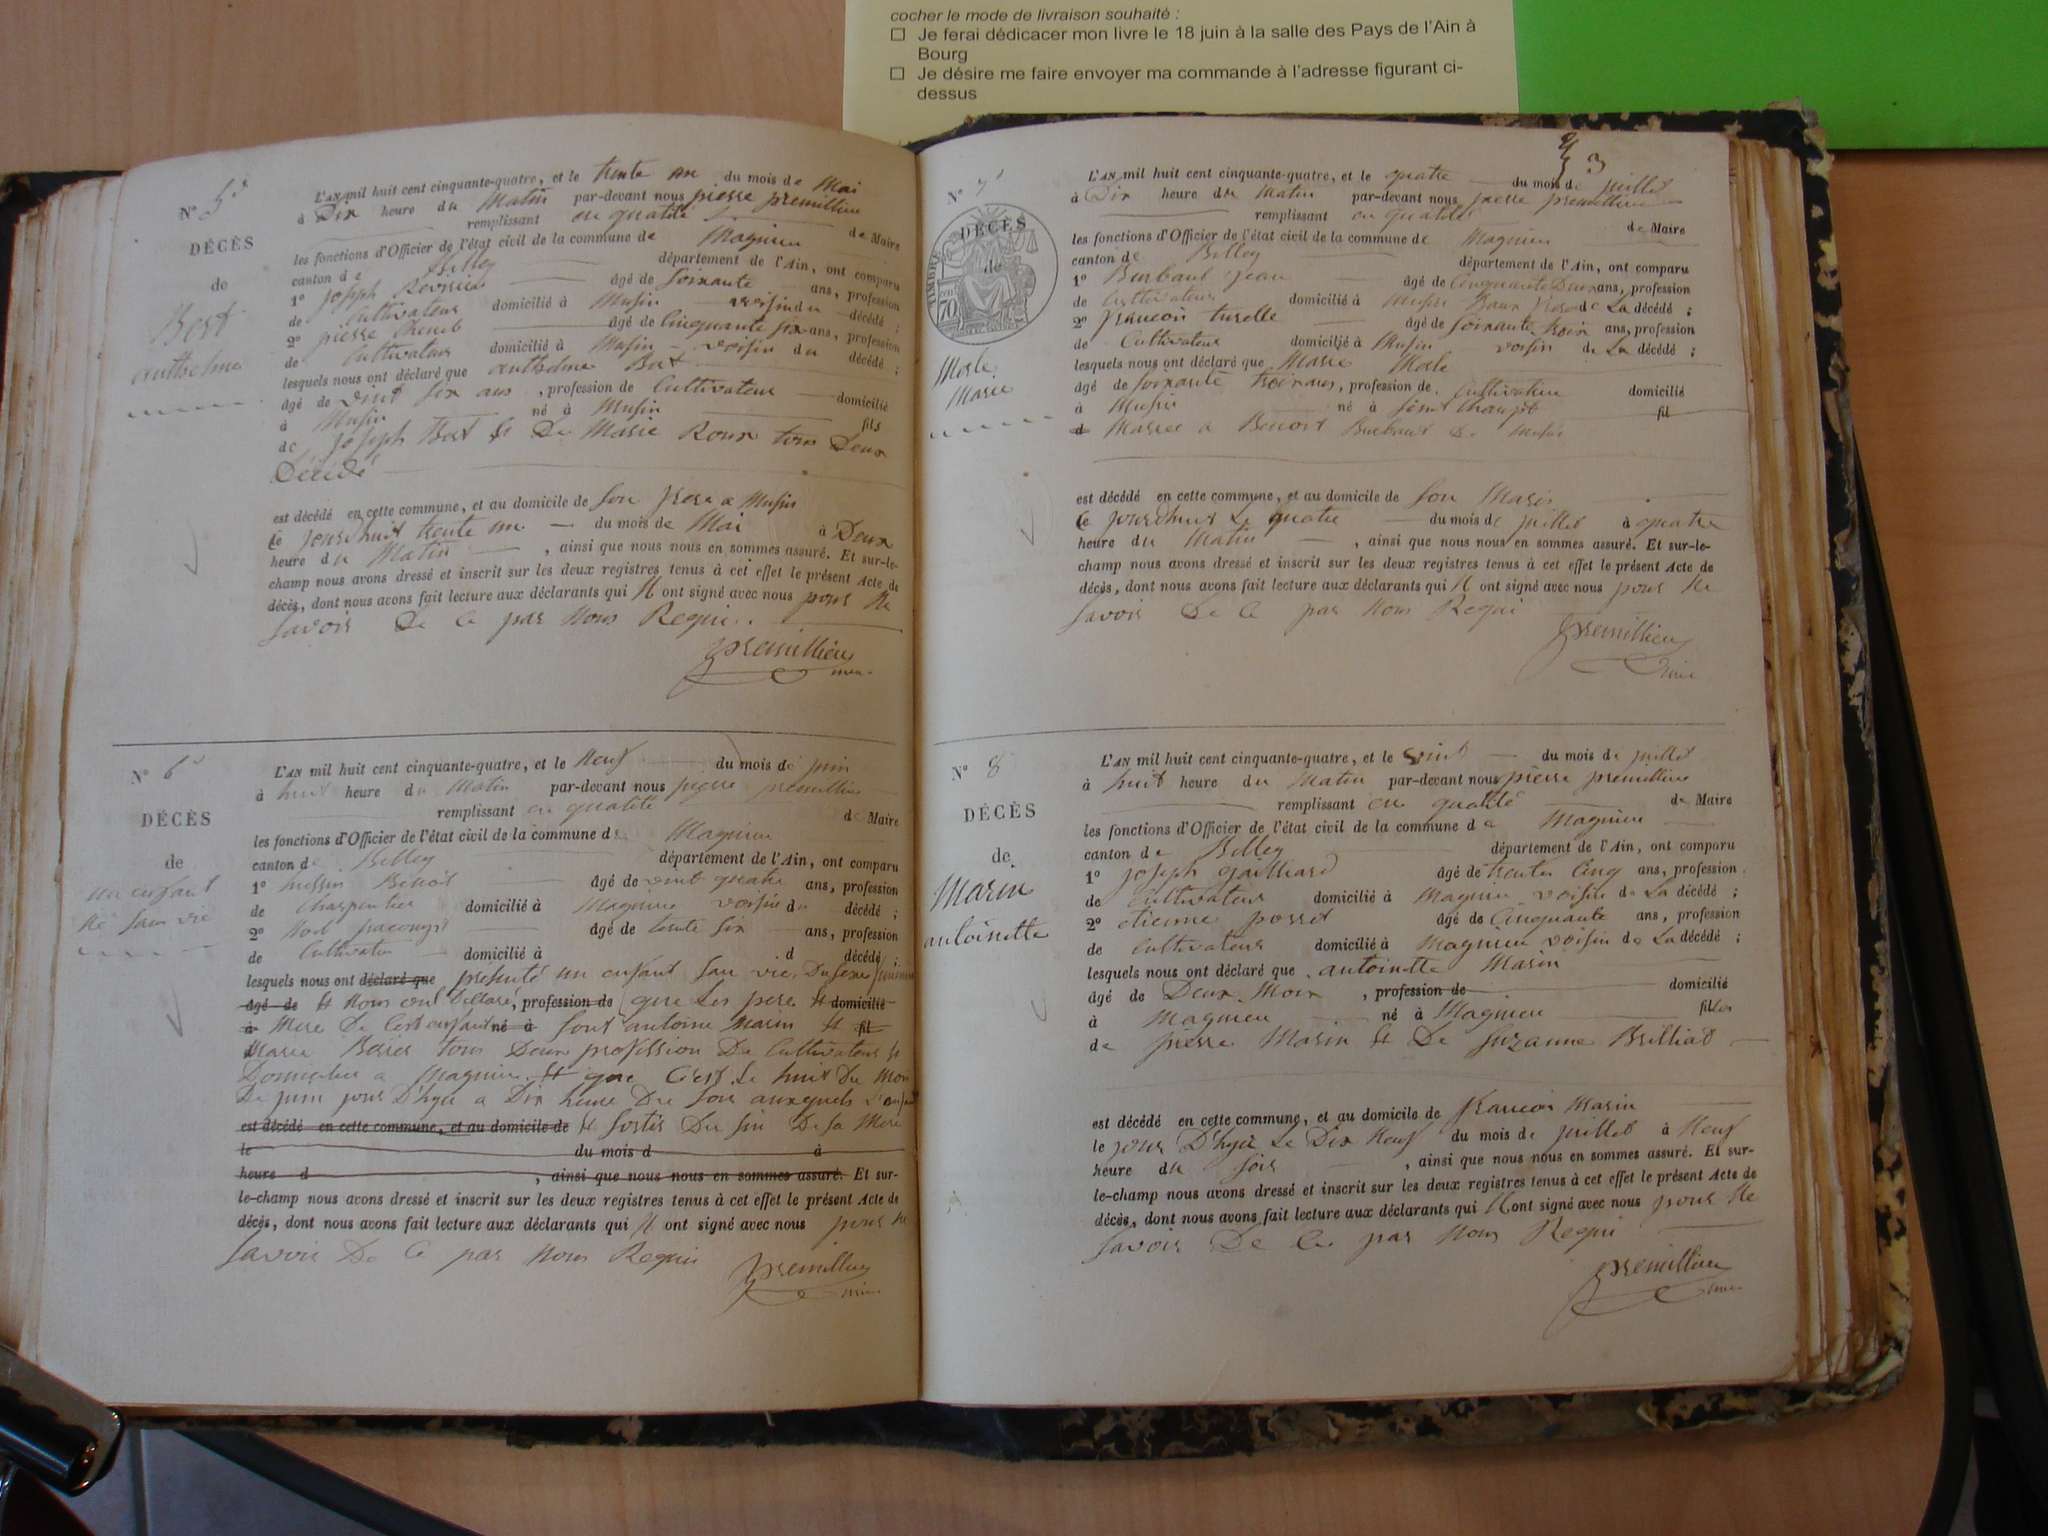 cocher le mode de livraison souhaité :
☐ Je ferai dédicacer mon livre le 18 juin à la salle des Pays de l'Ain à
Bourg
☐ Je désire me faire envoyer ma commande à l'adresse figurant ci-
dessus
N° 5
DÉCÈS
de
Bort
anthelme
L'AN mil huit cent cinquante-quatre, et le trente un du mois de Mai
à Dix heure du Matin par-devant nous pierre premillieu
remplissant en qualité de Maire
les fonctions d'Officier de l'état civil de la commune de Magnieu
canton de Belley département de l'Ain, ont comparu
1° joseph agé de soixante ans, profession
de Cultivateur domicilié à Musin voisin du décédé ;
2° pierre agé de Cinquante six ans, profession
de Cultivateur domicilié à Musin voisin du décédé ;
lesquels nous ont déclaré que anthelme Bort
agé de vint six ans, profession de Cultivateur domicilié
à Musin né à Musin fils
de joseph Bort et De Marie Roux tous Deux
Décédé
est décédé en cette commune, et au domicile de son frere a Musin
le jourdhuit trente un du mois de Mai à Deux
heure du Matin, ainsi que nous nous en sommes assuré. Et sur-le-
champ nous avons dressé et inscrit sur les deux registres tenus à cet effet le présent Acte de
décès, dont nous avons fait lecture aux déclarants qui N ont signé avec nous pour Ne
savoir De Ce par Nous Requi
premillieu
N° 6
DÉCÈS
de
un enfant
Né sans vie
L'AN mil huit cent cinquante-quatre, et le Neuf du mois de juin
à huit heure du Matin par-devant nous pierre premillieu
remplissant en qualité de Maire
les fonctions d'Officier de l'état civil de la commune de Magnieu
canton de Belley département de l'Ain, ont comparu
1° Benoit agé de vint quatre ans, profession
de Charpentier domicilié à Magnieu voisin du décédé ;
2° agé de trente six ans, profession
de Cultivateur domicilié à d décédé ;
lesquels nous ont déclaré que présenté un enfant san vie Du sexe
agé de Et Nous ont Déclaré, profession de que Les pere Et domicilié
à Mere De Cest enfant né à sont antoine Marin Et fil
Marie tous Deux profession De Cultivateur Et
Domicilier a Magnieu Et que C'est Le huit Du Moi
De juin jour D'hyer a Dix heure Du soir auxquels
est décédé en cette commune, et au domicile de Et sortis Du sin De sa Mere
le du mois d à
heure d , ainsi que nous nous en sommes assuré. Et sur-
le-champ nous avons dressé et inscrit sur les deux registres tenus à cet effet le présent Acte de
décès, dont nous avons fait lecture aux déclarants qui N ont signé avec nous pour Ne
savoir De Ce par Nous Requi
premillieu
3
N° 7
DÉCÈS
de
TIMBRE
70
Marie
L'AN mil huit cent cinquante-quatre, et le quatre du mois de juillet
à Dix heure du Matin par-devant nous pierre premillieu
remplissant en qualité de Maire
les fonctions d'Officier de l'état civil de la commune de Magnieu
canton de Belley département de l'Ain, ont comparu
1° Burbaud jean agé de Cinquante Deux ans, profession
de Cultivateur domicilié à Musin Beaux frere de La décédé ;
2° francois turelle agé de soixante trois ans, profession
de Cultivateur domicilié à Musin voisin de La décédé ;
lesquels nous ont déclaré que Marie
agé de soixante trois ans, profession de Cultivatrice domicilié
à Musin né à fil
d Mariee a Benoit Burbaud De Musin
est décédé en cette commune, et au domicile de son Marie
le jourdhuit Le quatre du mois de juillet à quatre
heure du Matin, ainsi que nous nous en sommes assuré. Et sur-le-
champ nous avons dressé et inscrit sur les deux registres tenus à cet effet le présent Acte de
décès, dont nous avons fait lecture aux déclarants qui N ont signé avec nous pour Ne
savoir De Ce par Nous Requi
premillieu
N° 8
DÉCÈS
de
Marin
antoinette
L'AN mil huit cent cinquante-quatre, et le vint du mois de juillet
à huit heure du Matin par-devant nous pierre premillieu
remplissant en qualité de Maire
les fonctions d'Officier de l'état civil de la commune de Magnieu
canton de Belley département de l'Ain, ont comparu
1° joseph gailliard agé de trente Cinq ans, profession
de Cultivateur domicilié à Magnieu voisin de La décédé ;
2° etienne posset agé de Cinquante ans, profession
de Cultivateur domicilié à Magnieu voisin de La décédé ;
lesquels nous ont déclaré que antoinette Marin
agé de Deux Mois, profession de domicilié
à Magnieu né à Magnieu filles
de pierre Marin Et De Suzanne Brilliat
est décédé en cette commune, et au domicile de francois Marin
le jour D'hyé Le Dix Neuf du mois de juillet à Neuf
heure du soir, ainsi que nous nous en sommes assuré. Et sur-
le-champ nous avons dressé et inscrit sur les deux registres tenus à cet effet le présent Acte de
décès, dont nous avons fait lecture aux déclarants qui N ont signé avec nous pour Ne
savoir De Ce par Nous Requi
premillieu